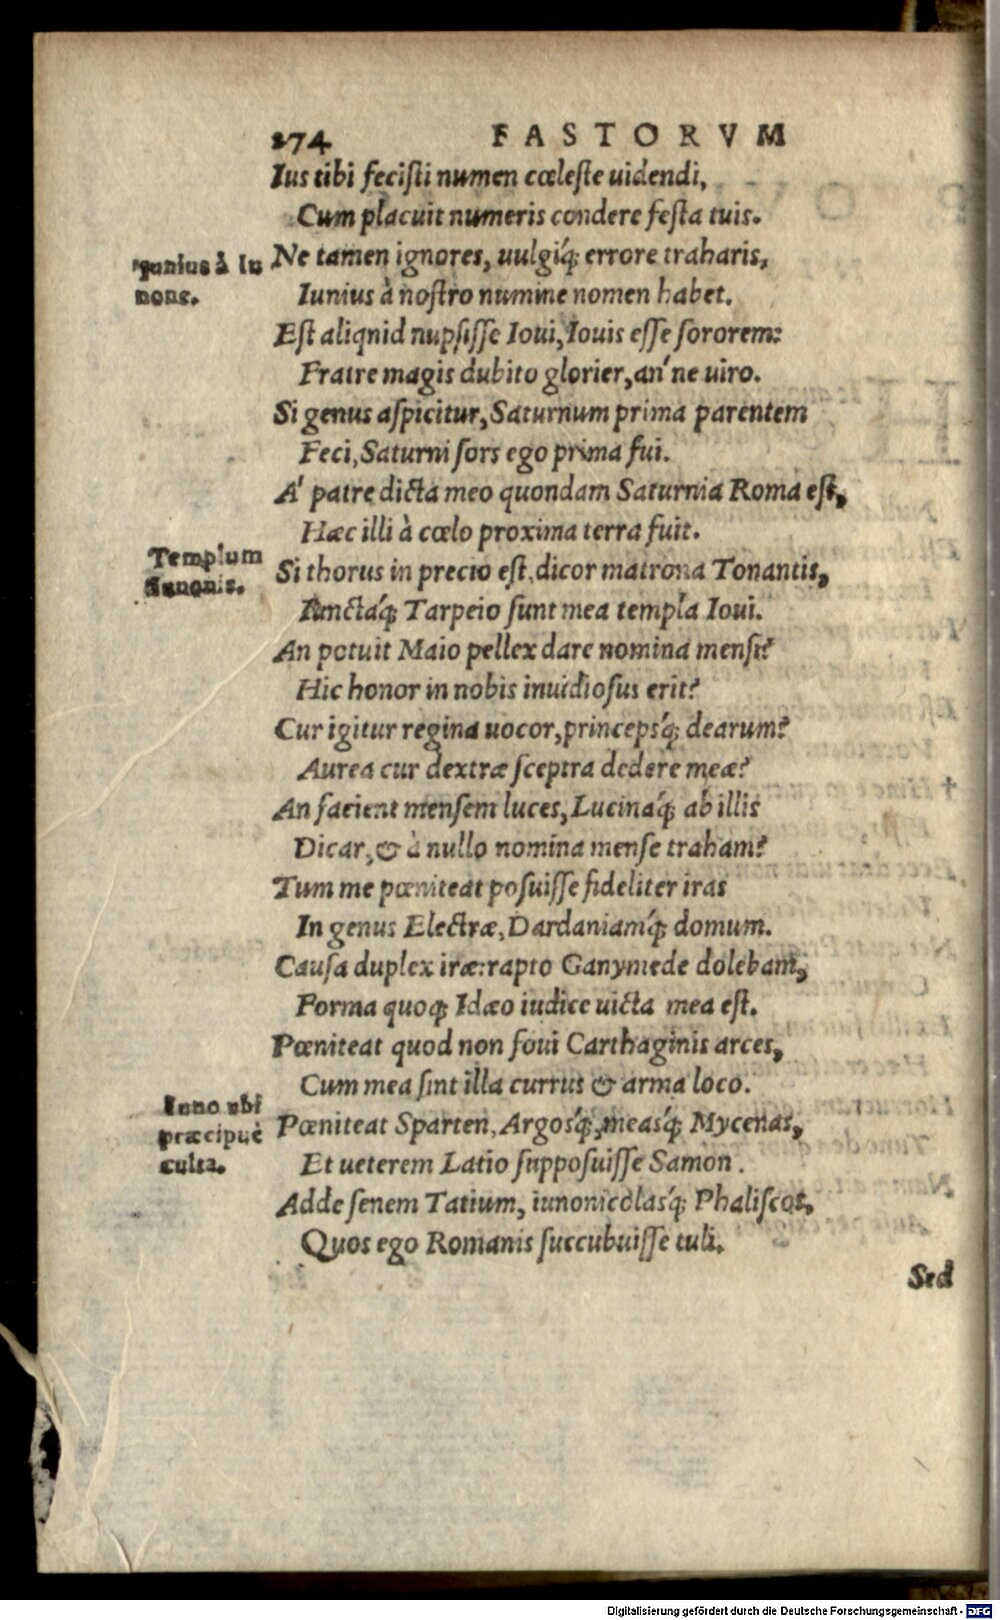 274 FASTORVM
Ius tibi fecisti numen cœleste uidendi,
Cum placuit numeris condere festa tuis.
Iunius à Iu
none.
Ne tamen ignores, uulgiq́; errore traharis,
Iunius à nostro numine nomen habet.
Est aliqnid nupsisse Ioui, Iouis esse sororem:
Fratre magis dubito glorier, an'ne uiro.
Si genus aspicitur, Saturnum prima parentem
Feci, Saturni sors ego prima fui.
A' patre dicta meo quondam Saturnia Roma est,
Hæc illi à cœlo proxima terra fuit.
Templum
Iunonis.
Si thorus in precio est, dicor matrona Tonantis,
Iunctaq́; Tarpeio sunt mea templa Ioui.
An potuit Maio pellex dare nomina mensi?
Hic honor in nobis inuidiosus erit?
Cur igitur regina uocor, princepsq́; dearum?
Aurea cur dextræ sceptra dedere meæ?
An facient mensem luces, Lucinaq́; ab illis
Dicar, & à nullo nomina mense traham?
Tum me pœniteat posuisse fideliter iras
In genus Electræ, Dardaniamq́; domum.
Causa duplex iræ: rapto Ganymede dolebam,
Forma quoq; Idæo iudice uicta mea est.
Pœniteat quod non foui Carthaginis arces,
Cum mea sint illa currus & arma loco.
Iuno ubi
præcipuè
culta.
Pœniteat Sparten, Argosq́;, measq́; Mycenas,
Et ueterem Latio supposuisse Samon.
Adde senem Tatium, iunonicolasq́; Phaliscos,
Quos ego Romanis succubuisse tuli.
Sed
Digitalisierung gefördert durch die Deutsche Forschungsgemeinschaft - DFG